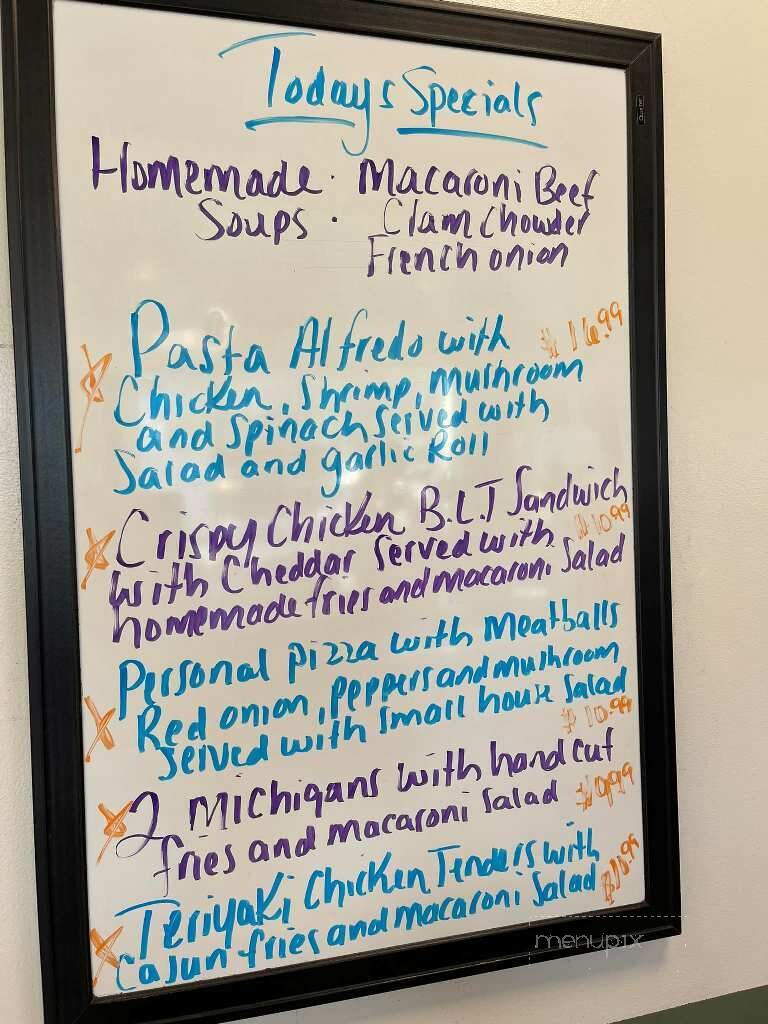 Todays Specials
Homemade · Macaroni Beef
Soups · Clam Chowder
French onion
Pasta Alfredo with $16.99
Chicken, Shrimp, Mushroom
and spinach served with
Salad and garlic Roll
Crispy Chicken B.L.T Sandwich
with Cheddar served with $10.99
homemade fries and macaroni Salad
Personal pizza with Meatballs
Red onion, peppers and mushroom
served with small house Salad
$10.99
2 Michigans with hand cut
fries and macaroni Salad
Teriyaki Chicken Tenders with
Cajun fries and macaroni Salad
menupix